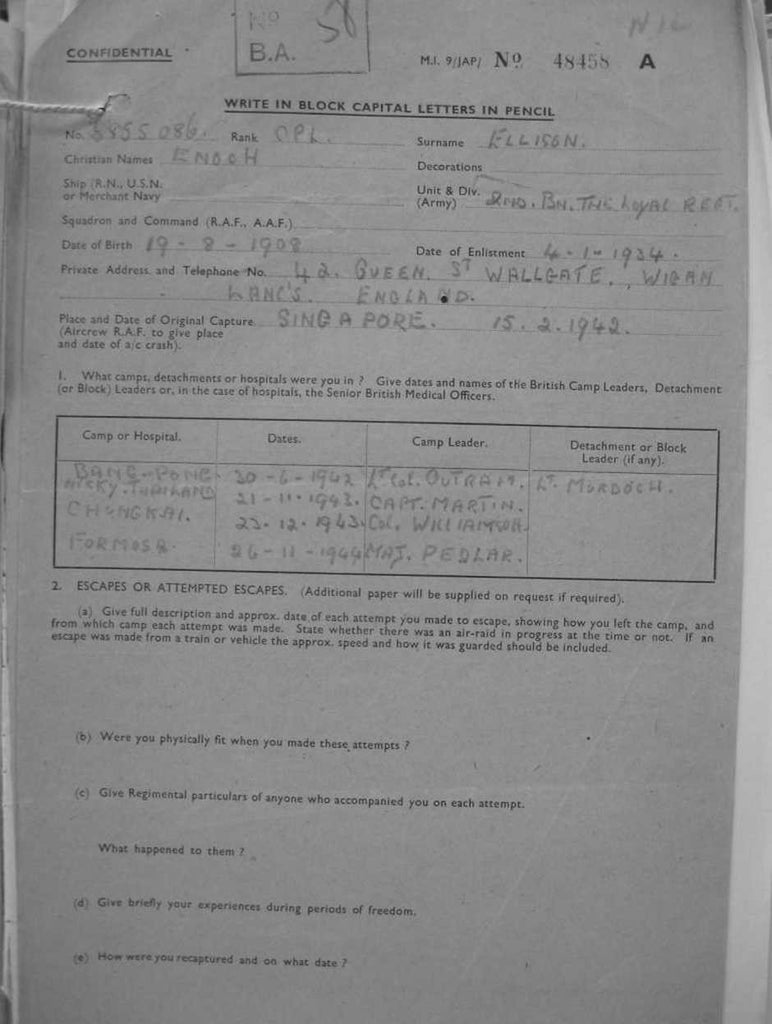 No 58 NIL
CONFIDENTIAL B.A. M.I. 9/JAP/ No 48458 A
WRITE IN BLOCK CAPITAL LETTERS IN PENCIL
No. 3855086. Rank CPL. Surname ELLISON.
Christian Names ENOCH Decorations
Ship (R.N., U.S.N. or Merchant Navy Unit & Div. (Army) 2ND. BN. THE LOYAL REGT.
Squadron and Command (R.A.F., A.A.F.)
Date of Birth 19-8-1908 Date of Enlistment 4-1-1934.
Private Address and Telephone No. 42. QUEEN. ST WALLGATE., WIGAN
LANC'S. ENGLAND.
Place and Date of Original Capture SINGAPORE. 15.2.1942.
(Aircrew R.A.F. to give place
and date of a/c crash).
1. What camps, detachments or hospitals were you in ? Give dates and names of the British Camp Leaders, Detachment
(or Block) Leaders or, in the case of hospitals, the Senior British Medical Officers.
Camp or Hospital. Dates. Camp Leader. Detachment or Block Leader (if any).
BANG-PONG. 30-6-1942 LT Col. OUTRAM. LT. MURDOCH.
THAILAND 21-11-1943. CAPT. MARTIN.
CHUNGKAI. 23.12.1943. Col. WILLIAMSON.
FORMOSA. 26-11-1944 MAJ. PEDLAR.
2. ESCAPES OR ATTEMPTED ESCAPES. (Additional paper will be supplied on request if required).
(a) Give full description and approx. date of each attempt you made to escape, showing how you left the camp, and
from which camp each attempt was made. State whether there was an air-raid in progress at the time or not. If an
escape was made from a train or vehicle the approx. speed and how it was guarded should be included.
(b) Were you physically fit when you made these attempts ?
(c) Give Regimental particulars of anyone who accompanied you on each attempt.
What happened to them ?
(d) Give briefly your experiences during periods of freedom.
(e) How were you recaptured and on what date ?